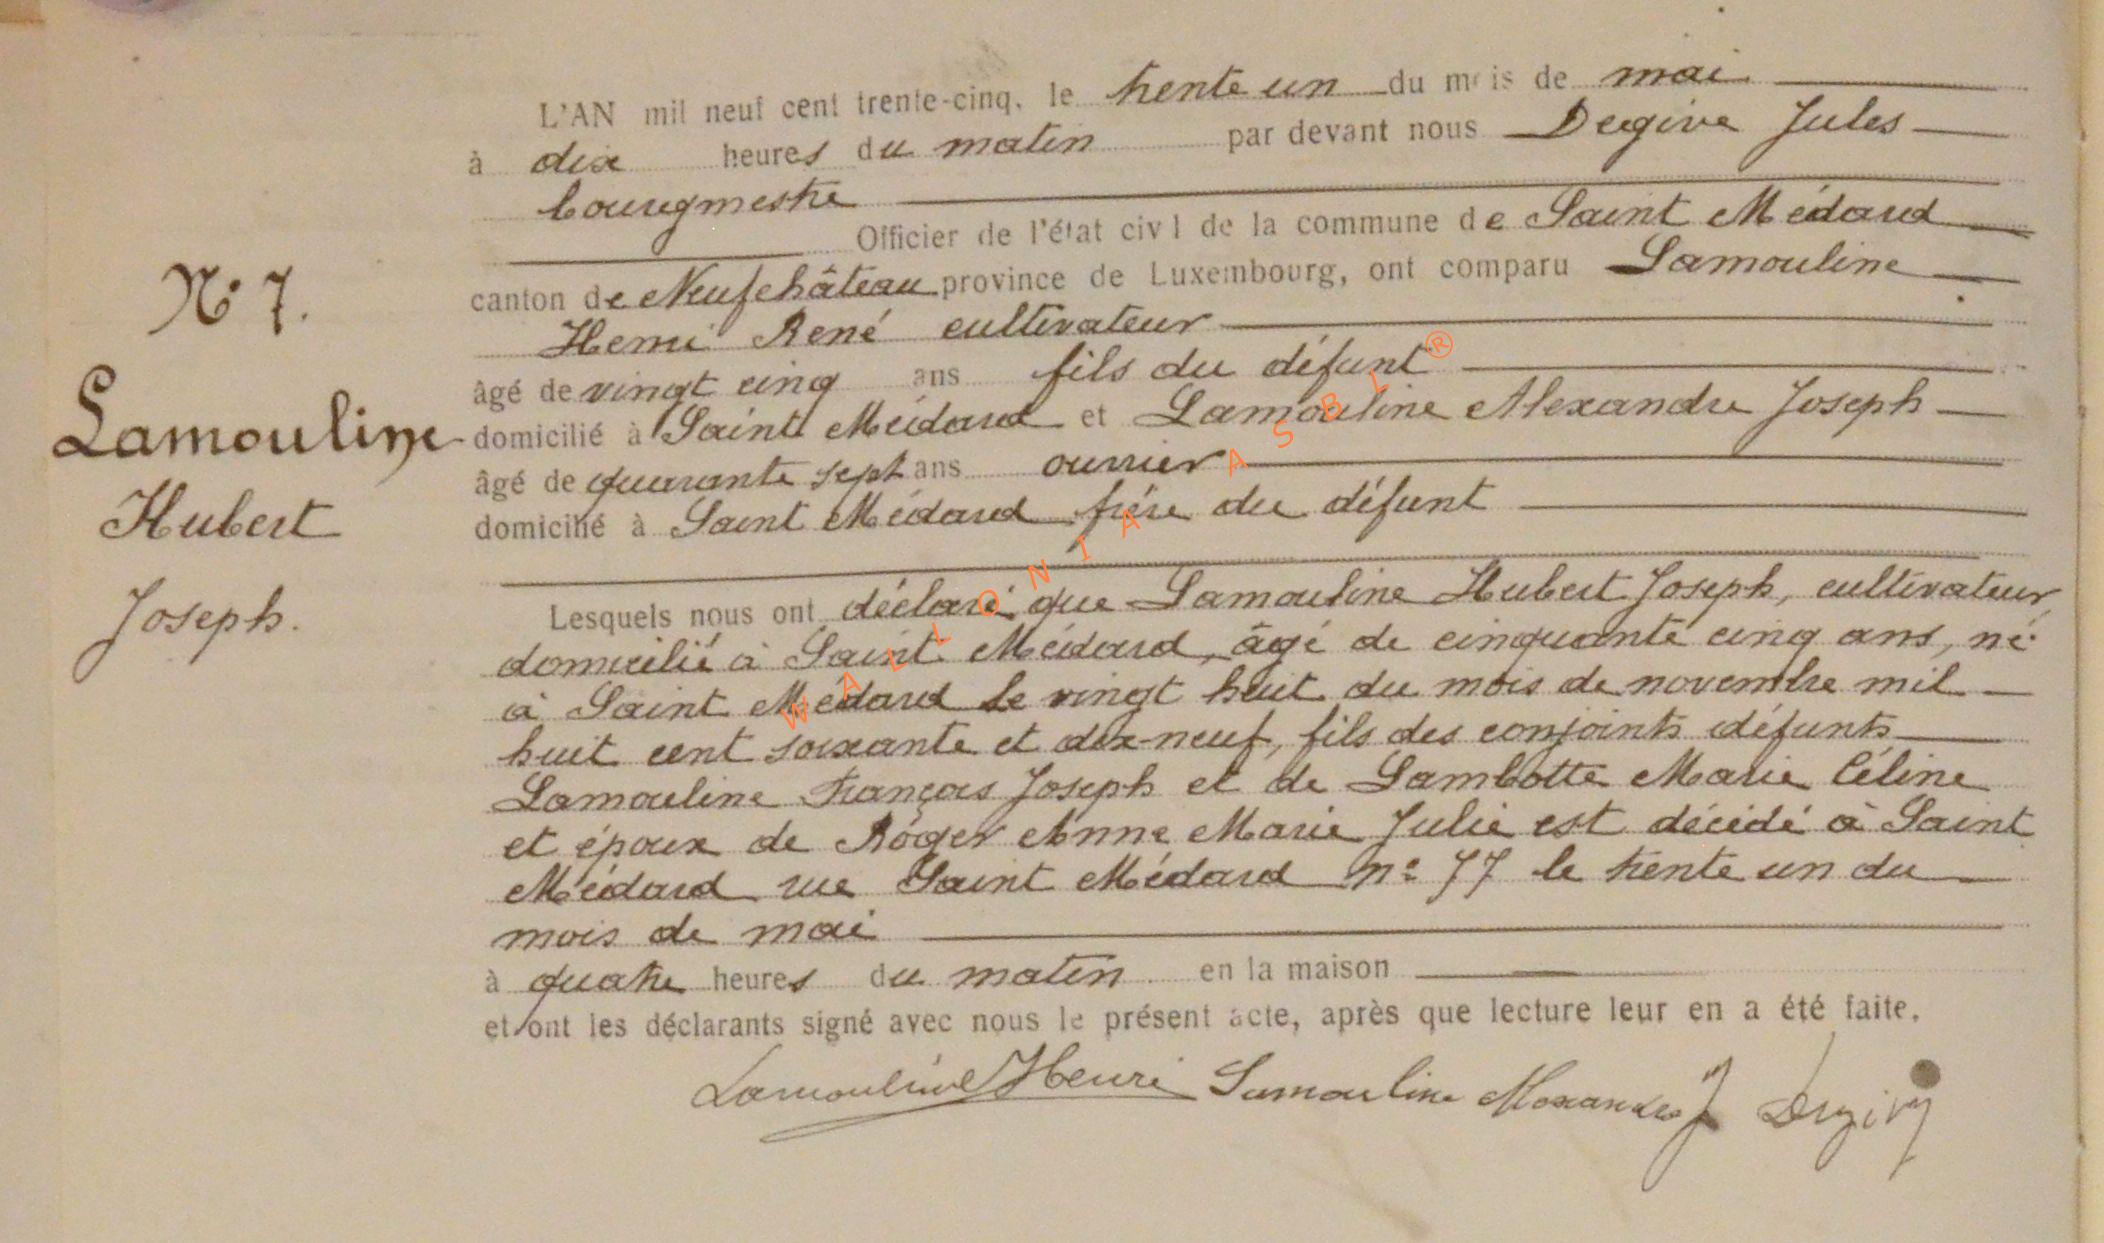 L'AN mil neuf cent trente-cinq, le trente un du mois de mai
à dix heures du matin par devant nous Degive Jules
bourgmestre
Officier de l'état civil de la commune de Saint Médard
canton de Neufchâteau province de Luxembourg, ont comparu Lamouline
Henri René cultivateur
âgé de vingt cinq ans fils du défunt
domicilié à Saint Médard et Lamouline Alexandre Joseph
âgé de quarante sept ans ouvrier
domicilié à Saint Médard frère du défunt
Lesquels nous ont déclaré que Lamouline Hubert Joseph, cultivateur,
domicilié à Saint Médard, âgé de cinquante cinq ans, né
à Saint Médard le vingt huit du mois de novembre mil
huit cent soixante et dix-neuf, fils des conjoints défunts
Lamouline François Joseph et de Lambotte Marie Céline
et époux de Roger Anne Marie Julie est décédé à Saint
Médard rue Saint Médard n° 77 le trente un du
mois de mai
à quatre heures du matin en la maison
et ont les déclarants signé avec nous le présent acte, après que lecture leur en a été faite.
Lamouline Henri Lamouline Alexandre J Degive
N° 7.
Lamouline
Hubert
Joseph.
WALLONIA ASBL ®